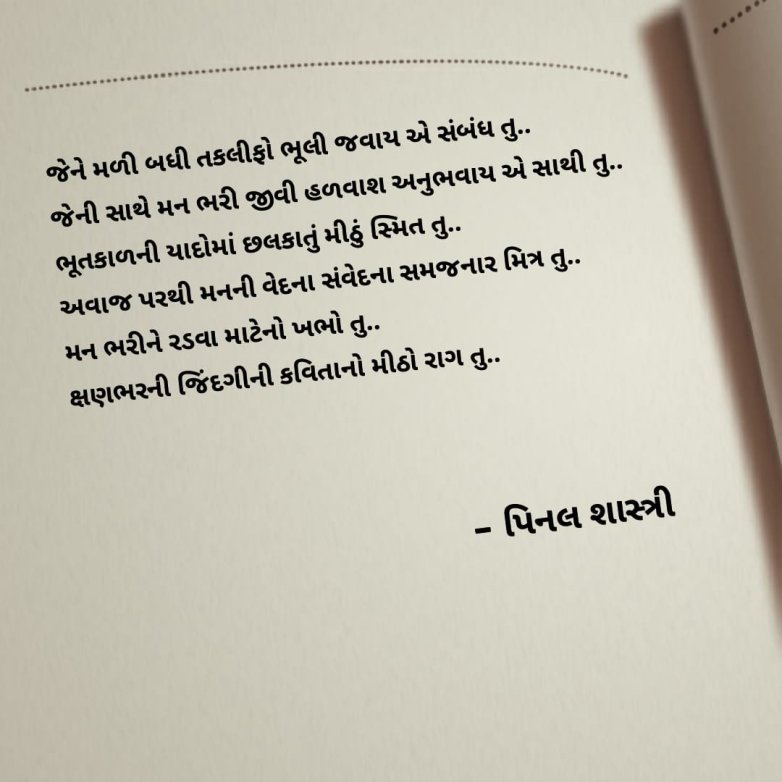 જેને મળી બધી તકલીફો ભૂલી જવાય એ સંબંધ તુ..
જેની સાથે મન ભરી જીવી હળવાશ અનુભવાય એ સાથી તુ..
ભૂતકાળની યાદોમાં છલકાતું મીઠું સ્મિત તુ..
અવાજ પરથી મનની વેદના સંવેદના સમજનાર મિત્ર તુ..
મન ભરીને રડવા માટેનો ખભો તુ..
ક્ષણભરની જિંદગીની કવિતાનો મીઠો રાગ તુ..
- પિનલ શાસ્ત્રી